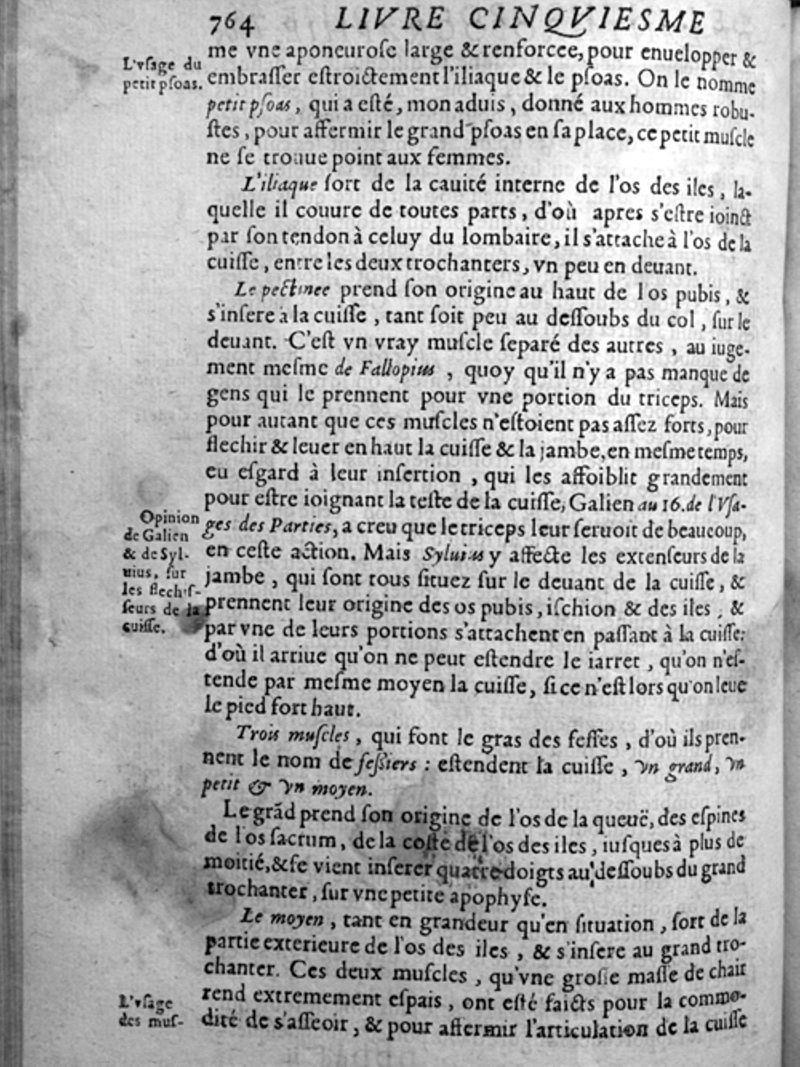 764 LIVRE CINQVIESME
L'vsage du
petit psoas.
me vne aponeurose large & renforcee, pour enuelopper &
embrasser estroictement l'iliaque & le psoas. On le nomme
petit psoas, qui a esté, mon aduis, donné aux hommes robu-
stes, pour affermir le grand psoas en sa place, ce petit muscle
ne se trouue point aux femmes.
L'iliaque sort de la cauité interne de l'os des iles, la-
quelle il couure de toutes parts, d'où apres s'estre ioinct
par son tendon à celuy du lombaire, il s'attache à l'os de la
cuisse, entre les deux trochanters, vn peu en deuant.
Le pectinee prend son origine au haut de l'os pubis, &
s'insere à la cuisse, tant soit peu au dessoubs du col, sur le
deuant. C'est vn vray muscle separé des autres, au iuge-
ment mesme de Fallopius, quoy qu'il n'y a pas manque de
gens qui le prennent pour vne portion du triceps. Mais
pour autant que ces muscles n'estoient pas assez forts, pour
flechir & leuer en haut la cuisse & la jambe, en mesme temps,
eu esgard à leur insertion, qui les affoiblit grandement
pour estre ioignant la teste de la cuisse, Galien au 16. de l'Vsa-
ges des Parties, a creu que le triceps leur seruoit de beaucoup,
en ceste action. Mais Syluius y affecte les extenseurs de la
jambe, qui sont tous situez sur le deuant de la cuisse, &
prennent leur origine des os pubis, ischion & des iles, &
par vne de leurs portions s'attachent en passant à la cuisse:
d'où il arriue qu'on ne peut estendre le iarret, qu'on n'es-
tende par mesme moyen la cuisse, si ce n'est lors qu'on leue
le pied fort haut.
Opinion
de Galien
& de Syl-
uius, sur
les flechis-
seurs de la
cuisse.
Trois muscles, qui font le gras des fesses, d'où ils pren-
nent le nom de fessiers: estendent la cuisse, vn grand, vn
petit & vn moyen.
Le grãd prend son origine de l'os de la queuë, des espines
de l'os sacrum, de la coste de l'os des iles, iusques à plus de
moitié, & se vient inserer quatre doigts au dessoubs du grand
trochanter, sur vne petite apophyse.
Le moyen, tant en grandeur qu'en situation, sort de la
partie exterieure de l'os des iles, & s'insere au grand tro-
chanter. Ces deux muscles, qu'vne grosse masse de chair
rend extremement espais, ont esté faicts pour la commo-
dité de s'asseoir, & pour affermir l'articulation de la cuisse
L'vsage
des mus-